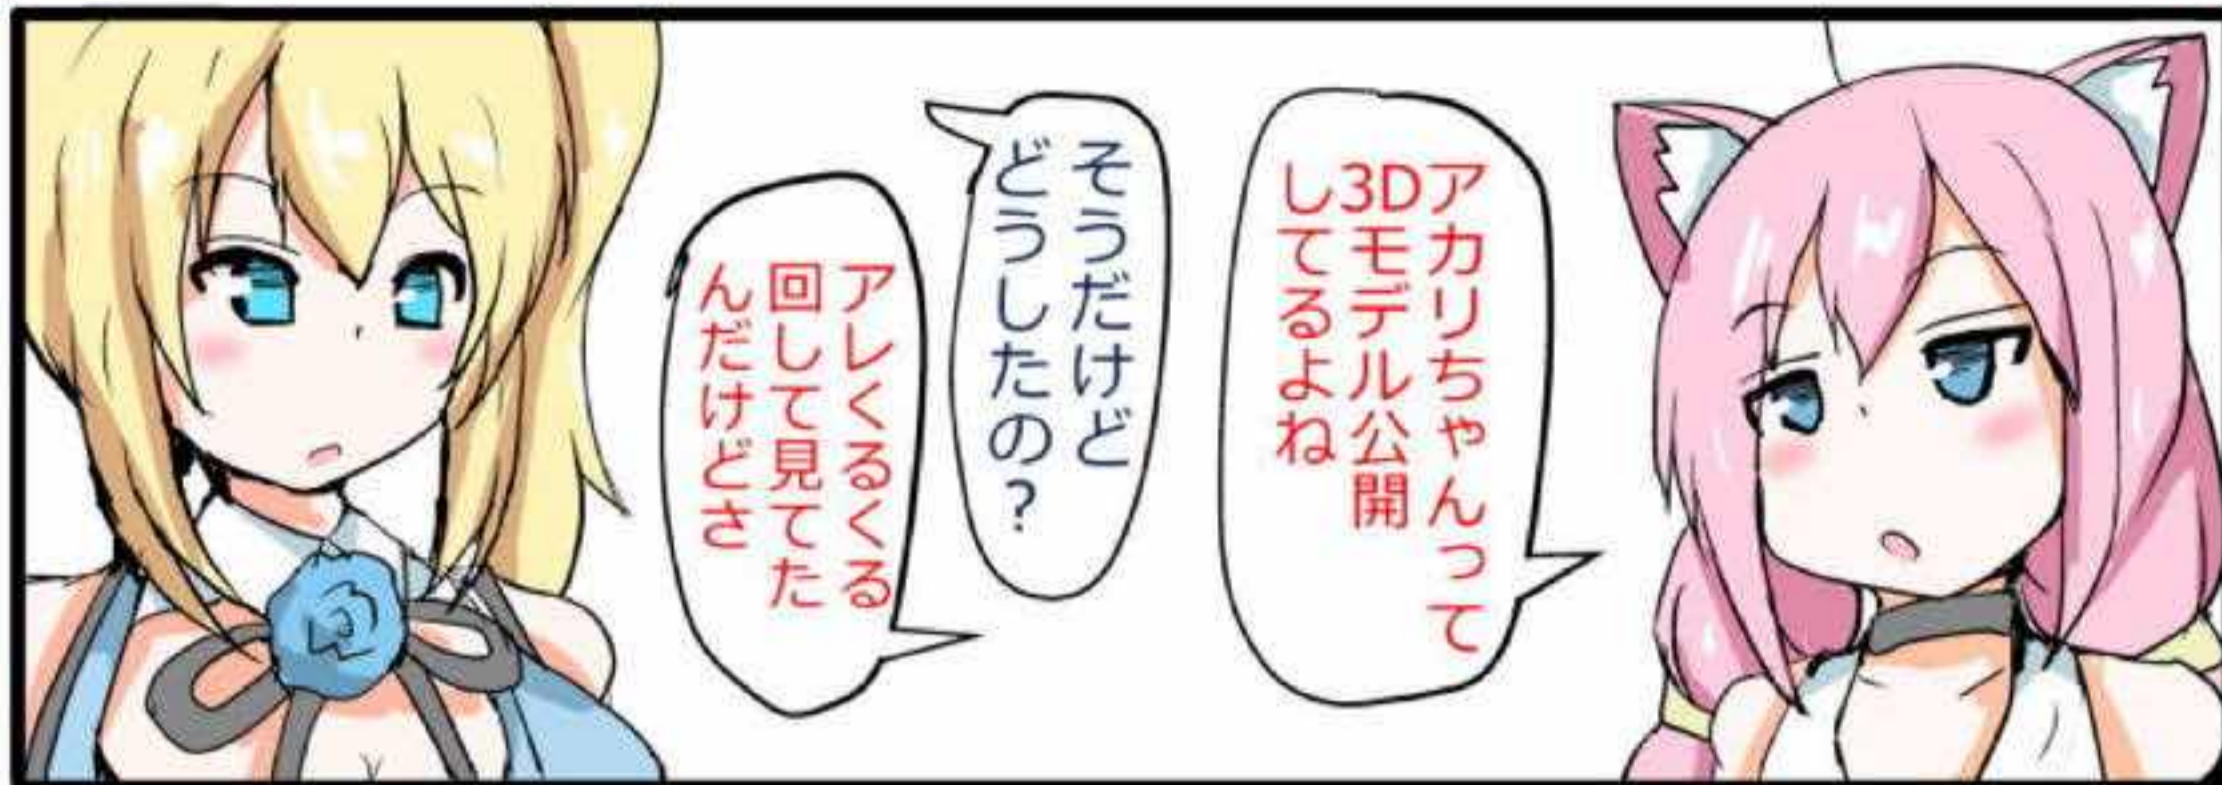 アカリちゃんって
3Dモデル公開
してるよね
そうだけど
どうしたの？
アレくるくる
回して見てた
んだけどさ